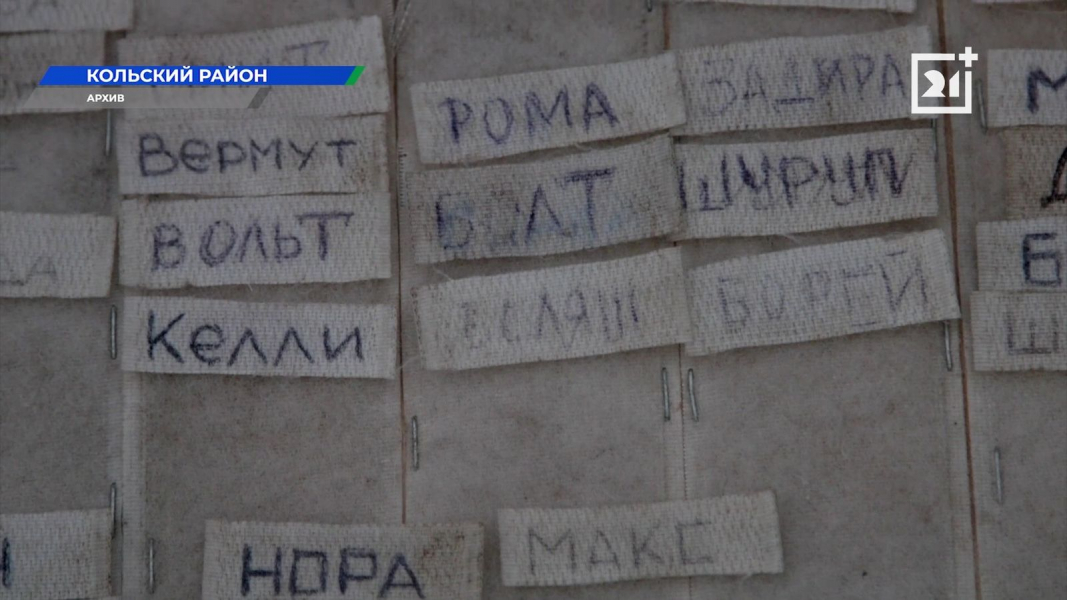 КОЛЬСКИЙ РАЙОН
АРХИВ
21+
ВЕРМУТ
ВОЛЬТ
КЕЛЛИ
РОМА
БОЛТ
БЕЛЯШ
ЗАДИРА
ШУРУП
БОРЕЙ
НОРА
МАКС